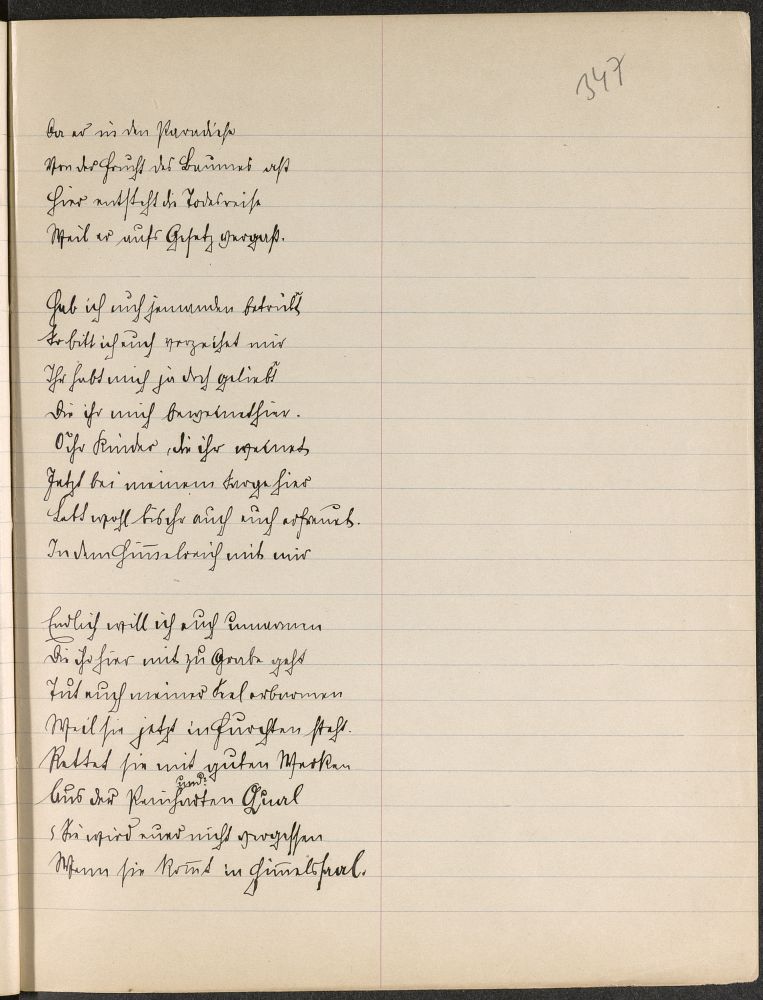 347
Da er in den Paradiese
Von der Frucht des Baumes aß
Hier entsteht die Todesreise
Weil er aufs Gesetz vergaß.
Hab ich auch jemanden betrübt
So bitt ich euch verzeihet mir
Ihr habt mich ja doch geliebt
Die ihr mich beweinet hier.
O ihr Kinder, die ihr weinet
Jetzt bei meinem Sarge hier
Lebt wohl bis ihr auch euch erfreuet.
In dem Him̅elreich mit mir
Endlich will ich euch umarmen
Die ihr hier mit zu Grabe geht
Tut euch meiner Seel erbarmen
Weil sie jetzt in Furchten steht.
Rettet sie mit guten Werken
Aus der Pein und harten Qual
Sie wird euer nicht vergessen
Wenn sie kom̅t in Him̅elssaal.